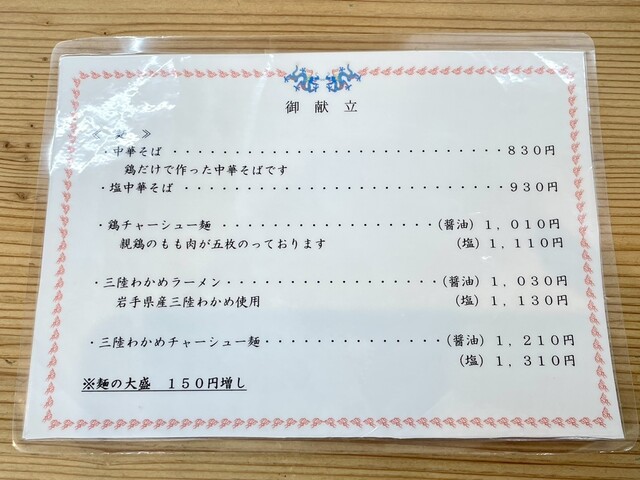 御 献 立
≪ ≫
・中華そば ・・・・・・・・・・・・・・・・・・・・・・・・・・・ 830円
鶏だけで作った中華そばです
・塩中華そば ・・・・・・・・・・・・・・・・・・・・・・・・・・ 930円
・鶏チャーシュー麺 ・・・・・・・・・・・・・・・・・ (醤油) 1,010円
親鶏のもも肉が五枚のっております (塩) 1,110円
・三陸わかめラーメン ・・・・・・・・・・・・・・・・・ (醤油) 1,030円
岩手県産三陸わかめ使用 (塩) 1,130円
・三陸わかめチャーシュー麺・・・・・・・・・・・・・・ (醤油) 1,210円
(塩) 1,310円
※麺の大盛 150円増し